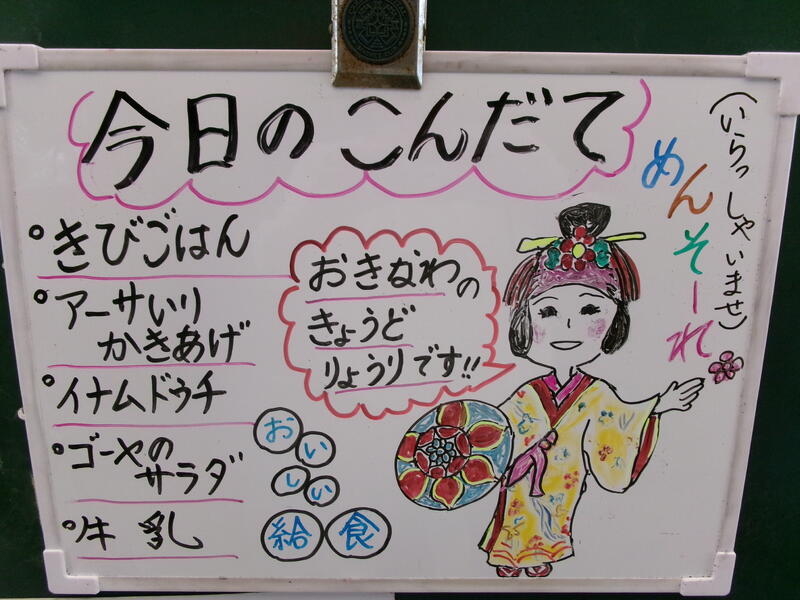 今日のこんだて
(いらっしゃいませ)
めんそーれ
。きびごはん
。アーサいり
かきあげ
。イナムドゥチ
。ゴーヤの
サラダ
。牛乳
おきなわの
きょうど
りょうりです!!
おいしい
給食